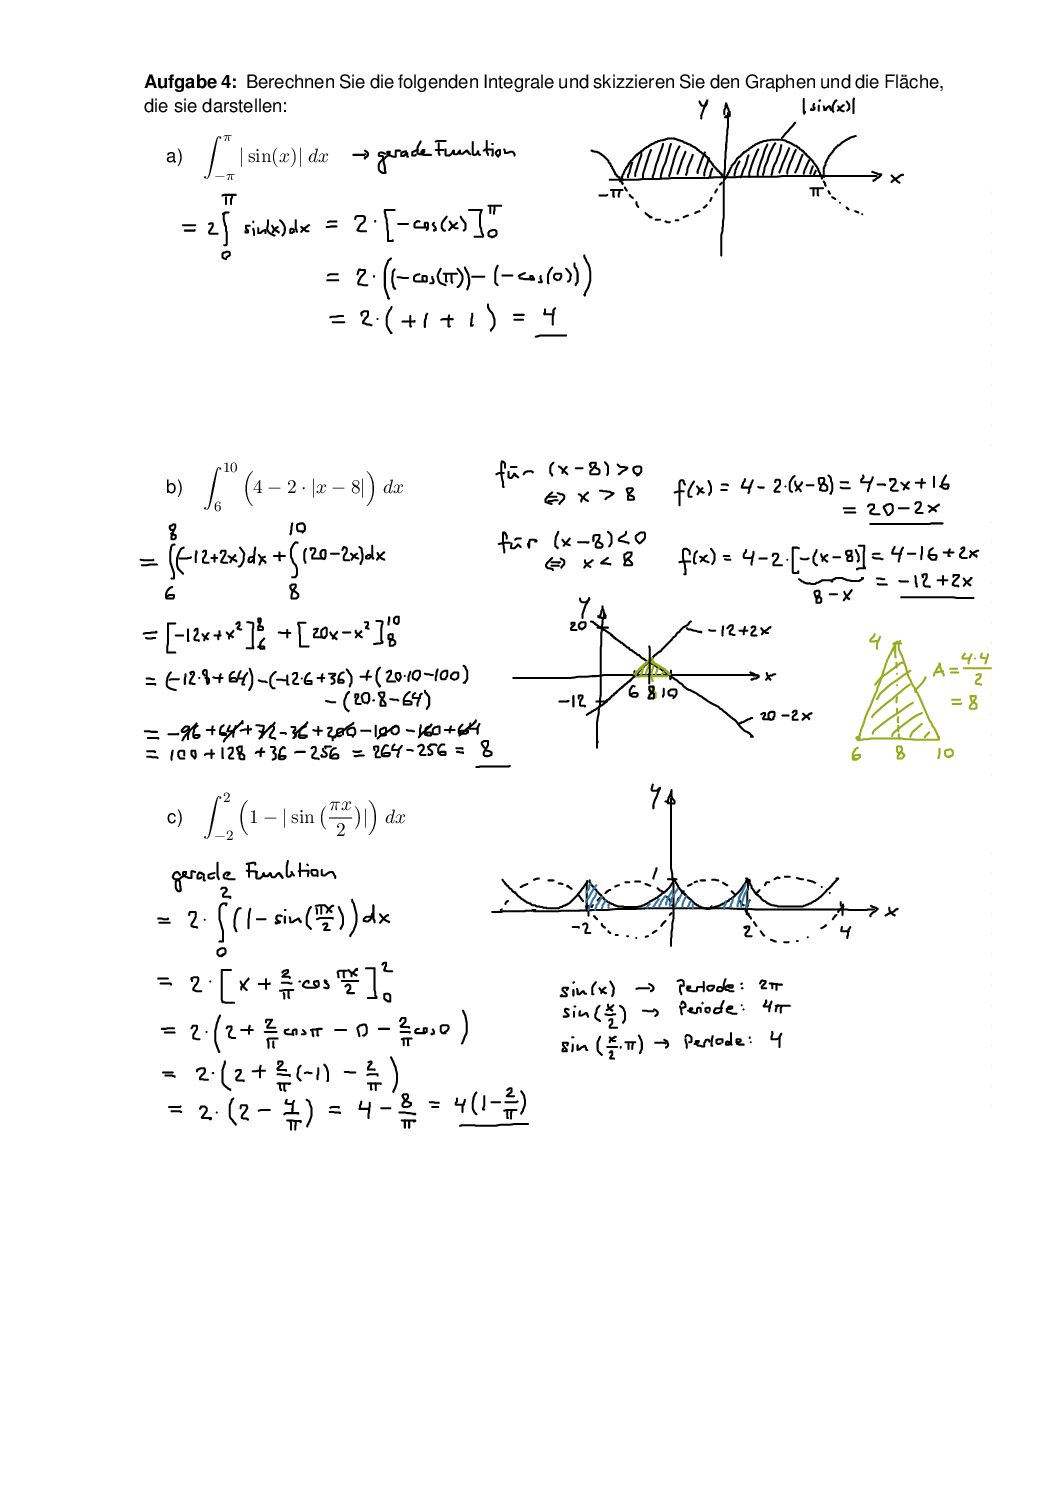 Aufgabe 4: Berechnen Sie die folgenden Integrale und skizzieren Sie den Graphen und die Fläche,
die sie darstellen:
a) ∫_{-π}^{π} |sin(x)| dx → gerade Funktion
= 2 ∫_0^π sin(x)dx = 2·[-cos(x)]_0^π
= 2·((-cos(π))-(-cos(0)))
= 2·(+1+1) = 4
y
|sin(x)|
-π π x
b) ∫_6^{10} (4 - 2·|x - 8|) dx
für (x-8)>0
⇔ x > 8
f(x) = 4-2·(x-8) = 4-2x+16
= 20-2x
für (x-8)<0
⇔ x < 8
f(x) = 4-2·[-(x-8)] = 4-16+2x
8-x
= -12+2x
= ∫_6^8 (-12+2x)dx + ∫_8^{10} (20-2x)dx
= [-12x+x²]_6^8 + [20x-x²]_8^{10}
= (-12·8+64)-(-12·6+36)+(20·10-100)
-(20·8-64)
= -96+64+72-36+200-100-160+64
= 100+128+36-256 = 264-256 = 8
y
20
-12+2x
x
6 8 10
-12
20-2x
4
A = 4·4/2
= 8
6 8 10
c) ∫_{-2}^{2} (1 - |sin(πx/2)|) dx
gerade Funktion
= 2·∫_0^2 (1-sin(πx/2))dx
= 2·[x + 2/π·cos πx/2]_0^2
= 2·(2+2/π cosπ - 0 - 2/π cos0)
= 2·(2+2/π(-1) - 2/π)
= 2·(2-4/π) = 4-8/π = 4(1-2/π)
y
1
x
-2 2 4
sin(x) → Periode: 2π
sin(x/2) → Periode: 4π
sin(x/2·π) → Periode: 4